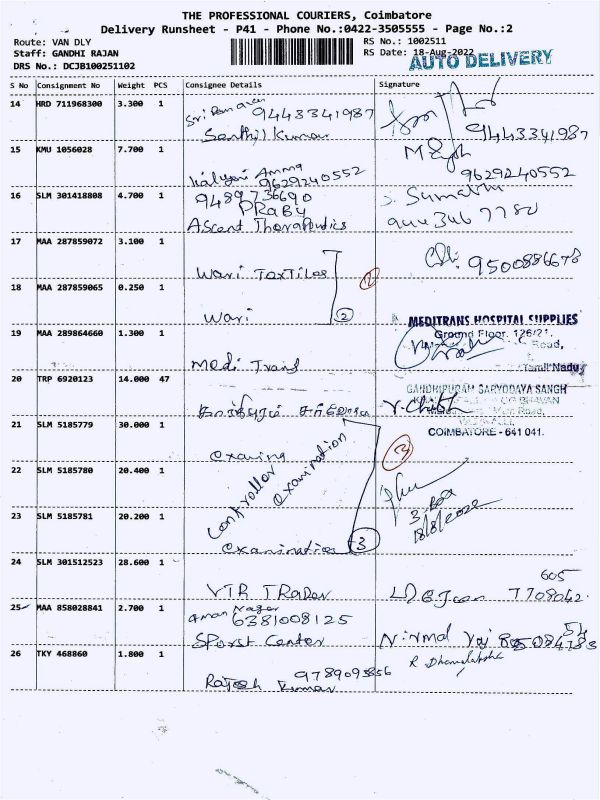 THE PROFESSIONAL COURIERS, Coimbatore
Delivery Runsheet - P41 - Phone No.:0422-3505555 - Page No.:2
Route: VAN DLY RS No.: 1002511
Staff: GANDHI RAJAN RS Date: 18-Aug-2022
DRS No.: DCJB100251102 AUTO DELIVERY
S No Consignment No Weight PCS Consignee Details Signature
14 HRD 711968300 3.300 1
9443341987
Senthil Kumar 9443341987
15 KMU 1056028 7.700 1
Kalyani Amma 9629240552
9629240552
16 SLM 301418808 4.700 1 9489736690
PRABU
Ascent Therapeutics
17 MAA 287859072 3.100 1
Wari Textiles 9500886678
18 MAA 287859065 0.250 1
Wari 2
19 MAA 289864660 1.300 1 MEDITRANS HOSPITAL SUPPLIES
Ground Floor, 126/21,
Road,
Medi Trans Tamil Nadu
20 TRP 6920123 14.000 47 GANDHIPURAM SARVODAYA SANGH
BHAVAN
Main Road,
21 SLM 5185779 30.000 1 COIMBATORE - 641 041.
22 SLM 5185780 20.400 1
controller examination
23 SLM 5185781 20.200 1
18/8/2022
examination 3
24 SLM 301512523 28.600 1
605
VTR TRader 7708042
25 MAA 858028841 2.700 1
6381008125
Sporst Center
26 TKY 468860 1.800 1
9789095856
Rajesh Kumar